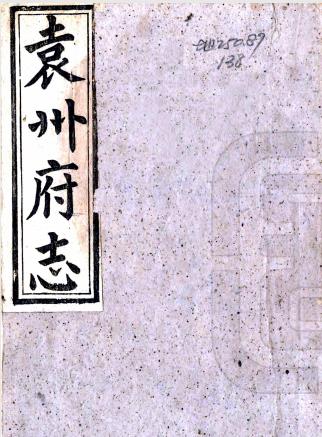 袁州府志
地250.89
138